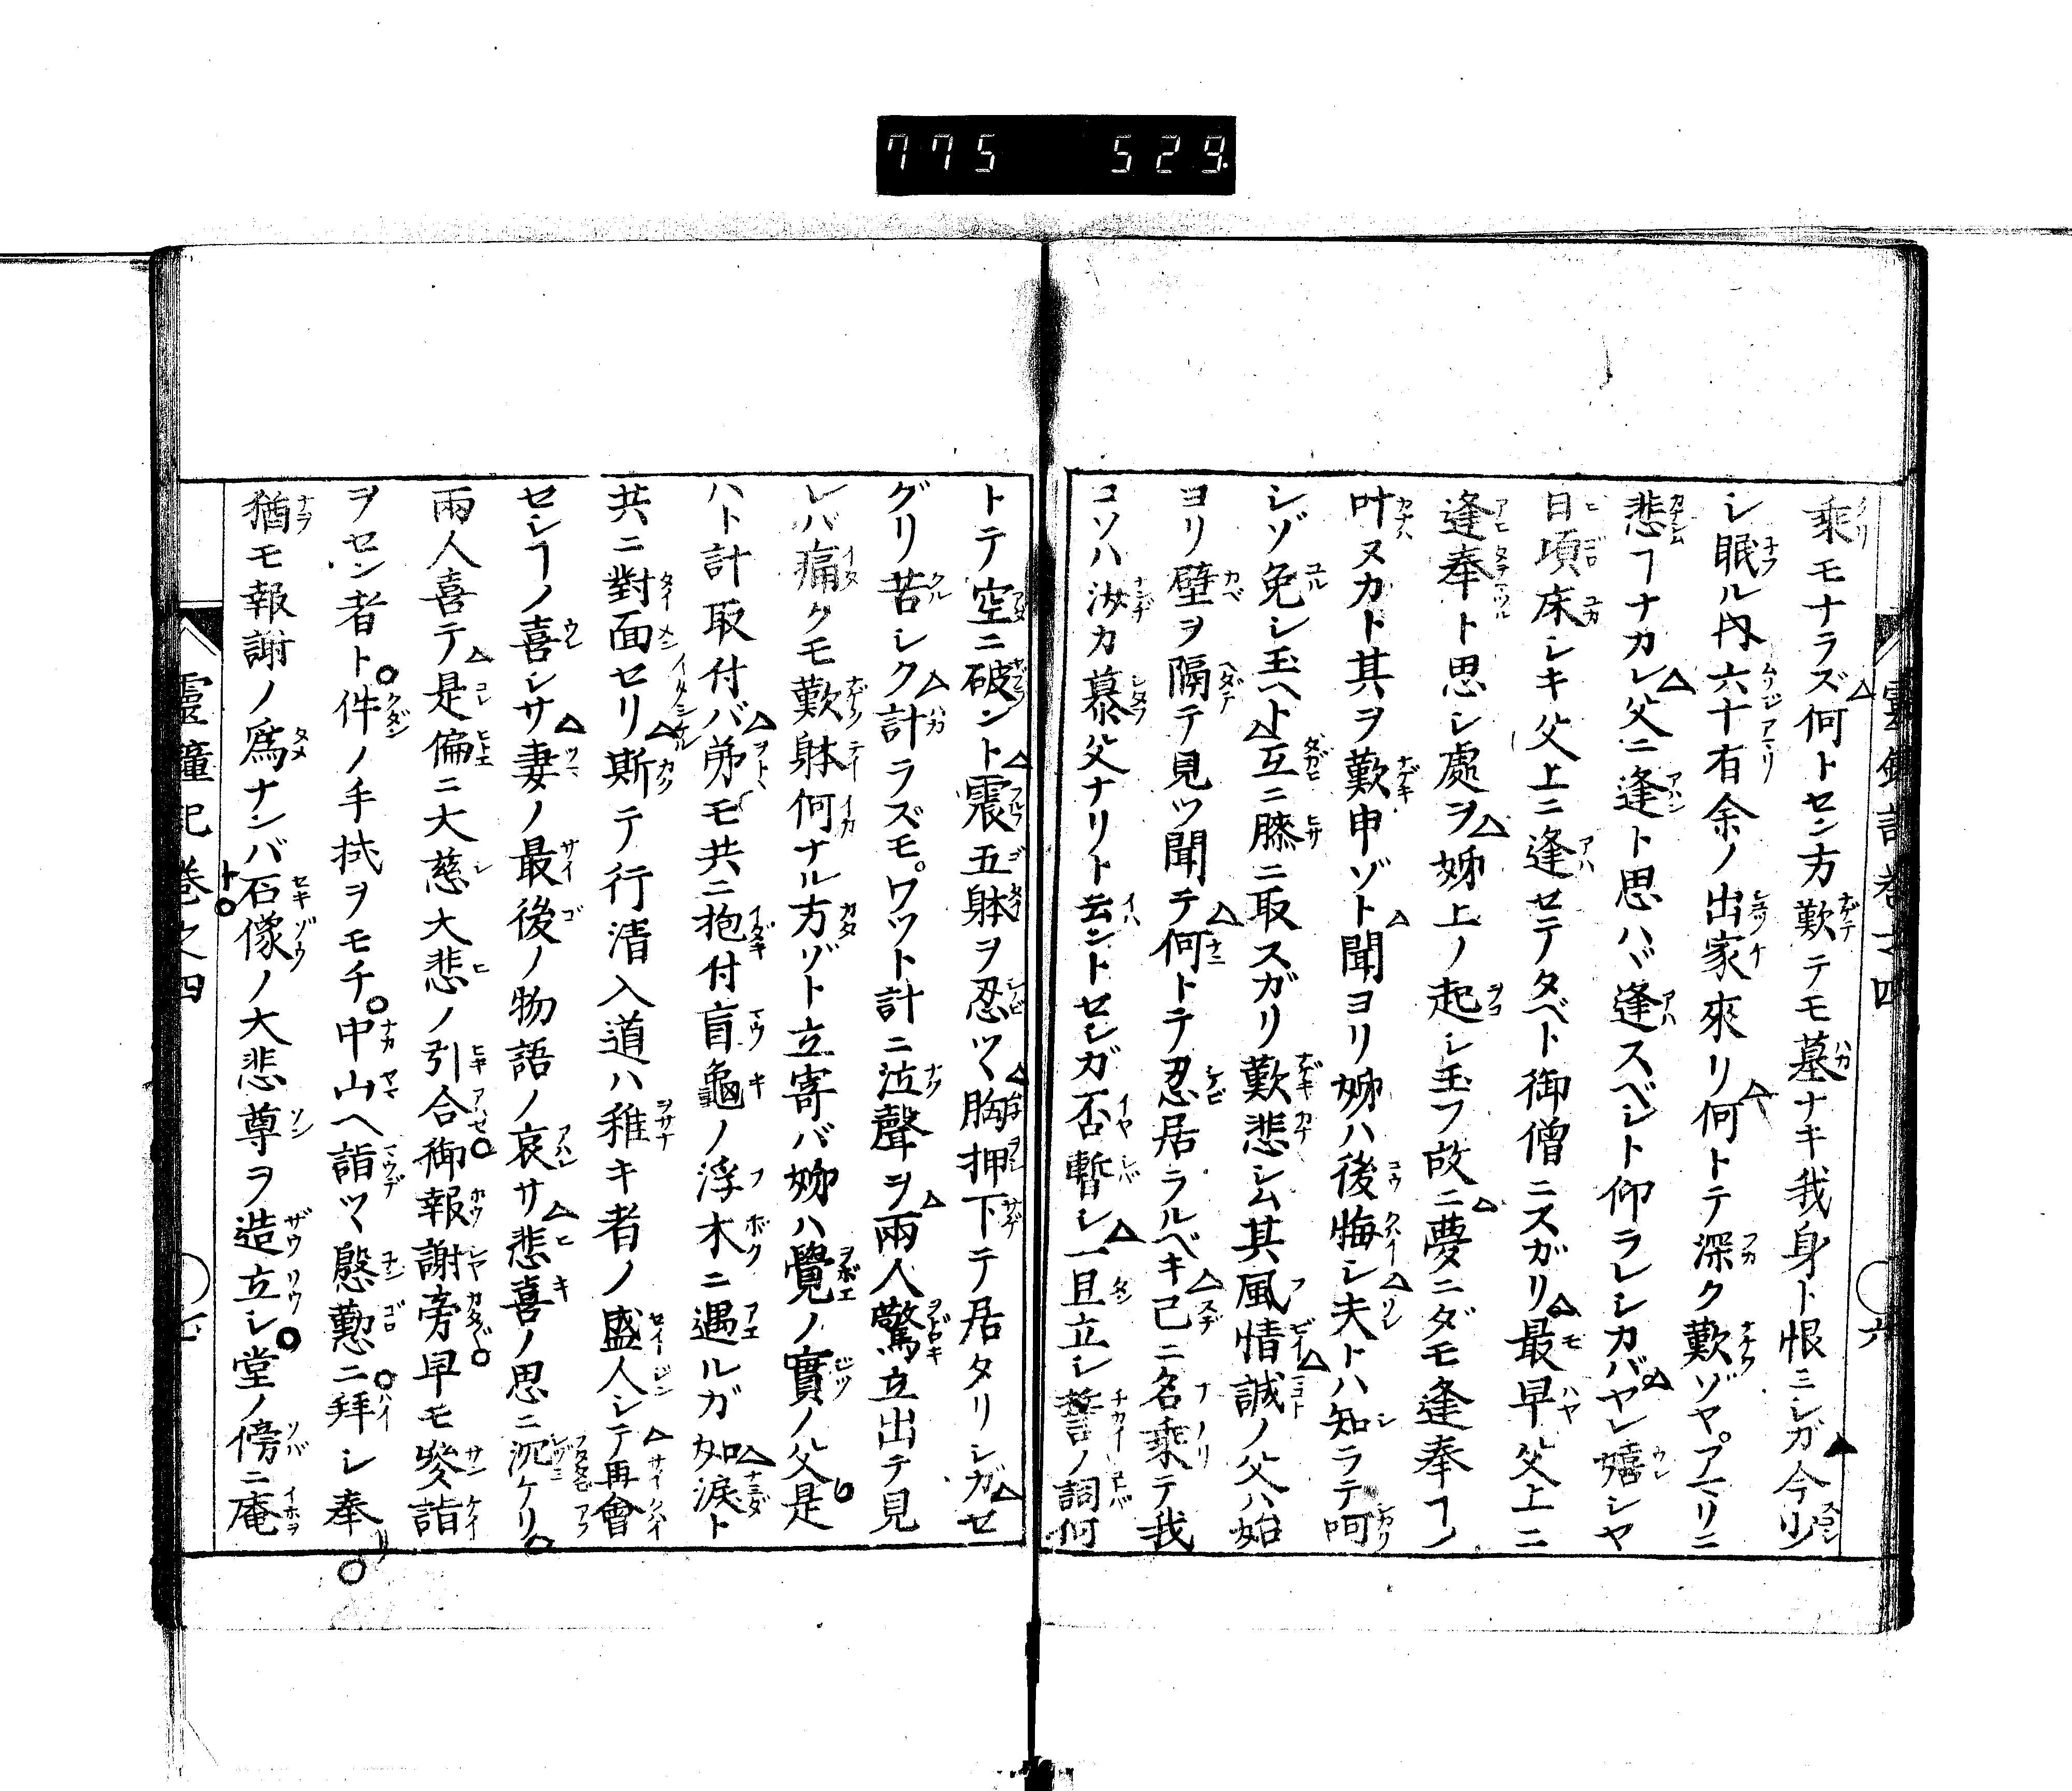 775 529
乘モナラズ何トセン方歎テモ墓ナキ我身ト恨ミシガ今少
シ眠ル内六十有余ノ出家來リ何トテ深ク歎ゾヤアマリニ
悲ヿナカレ父ニ逢ト思ハヾ逢スベシト仰ラレシカバヤレ嬉シヤ
日頃床シキ父上ニ逢セテタベト御僧ニスガリ最早父上ニ
逢奉ト思シ處ヲ姊上ノ起シ玉フ故ニ夢ニダモ逢奉ヿノ
叶ヌカト其ヲ歎申ゾト聞ヨリ姊ハ後悔シ夫トハ知ラテ呵
シゾ免シ玉ヘト互ニ膝ニ取スガリ歎悲シム其風情誠ノ父ハ始
ヨリ壁ヲ隔テ見ツ聞テ何トテ忍居ラルベキ已ニ名乘テ我
コソハ汝カ慕父ナリト云ントセシガ否暫シ一旦立シ誓ノ詞何
トテ空ニ破ント震五躰ヲ忍ツヽ胸押下テ居タリシガセ
グリ苦シク計ラズモワット計ニ泣聲ヲ兩人驚立出テ見
レバ痛クモ歎躰何ナル方ゾト立寄バ姊ハ覺ノ實ノ父是
ハト計取付バ弟モ共ニ抱付盲龜ノ浮木ニ遇ルガ如涙ト
共ニ對面セリ斯テ行清入道ハ稚キ者ノ盛人シテ再會
セシヿノ喜シサ妻ノ最後ノ物語ノ哀サ悲喜ノ思ニ沉ケリ
兩人喜テ是偏ニ大慈大悲ノ引合御報謝旁早モ參詣
ヲセン者ト件ノ手拭ヲモチ中山ヘ詣ツヽ慇懃ニ拜シ奉リ
猶モ報謝ノ爲ナンバ石像ノ大悲尊ヲ造立シ堂ノ傍ニ庵
靈鐘記卷之四